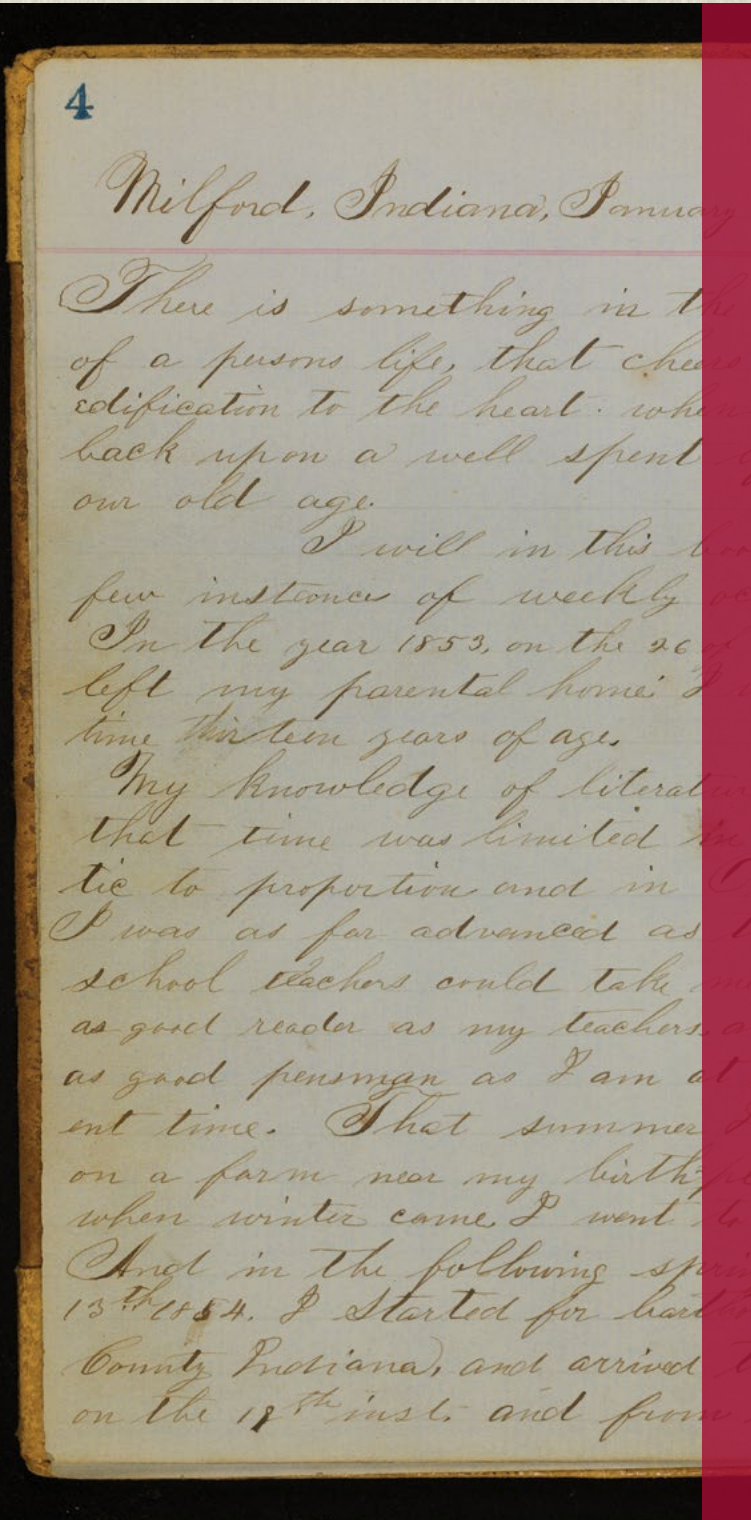 4
Milford, Indiana, January
There is something in the
of a persons life, that cheers
edification to the heart. when
back upon a well spent
our old age.
I will in this
few instances of weekly
In the year 1853, on the 26 of
left my parental home. I
time thirteen years of age.
My knowledge of literatur
that time was limited in
tic to proportion and in
I was as far advanced as
school teachers could take
as good reader as my teachers.
as good pensman as I am at
ent time. That summer I
on a farm near my birth
when winter came I went to
And in the following sprin
13th 1854. I started for barth
County Indiana, and arrived
on the 19th inst. and from